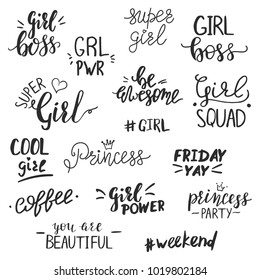 girl
boss
GRL
PWR
super
girl
GIRL
boss
SUPER
Girl
be
awesome
#GIRL
Girl
SQUAD
COOL
girl
Princess
FRIDAY
YAY
coffee
girl
POWER
princess
PARTY
you are
BEAUTIFUL
#weekend
shutterstock.com · 1019802184